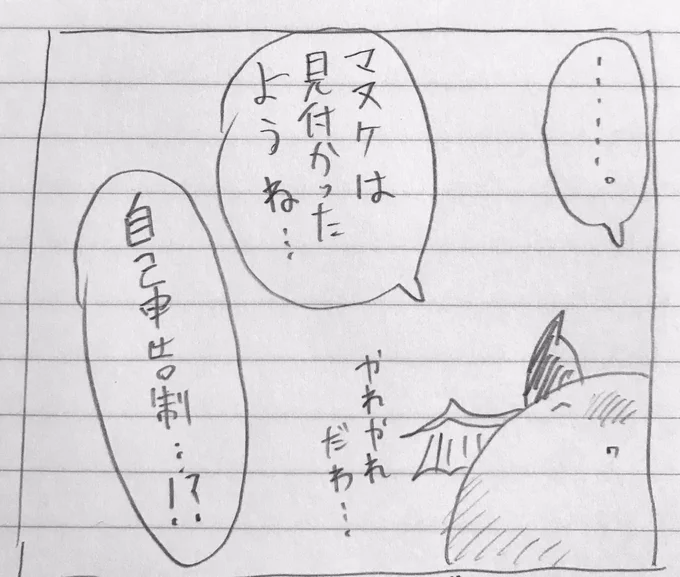 ・・・・・・。
マヌケは
見付かった
ようね…
やれやれ
だわ…
自己申告制…!?